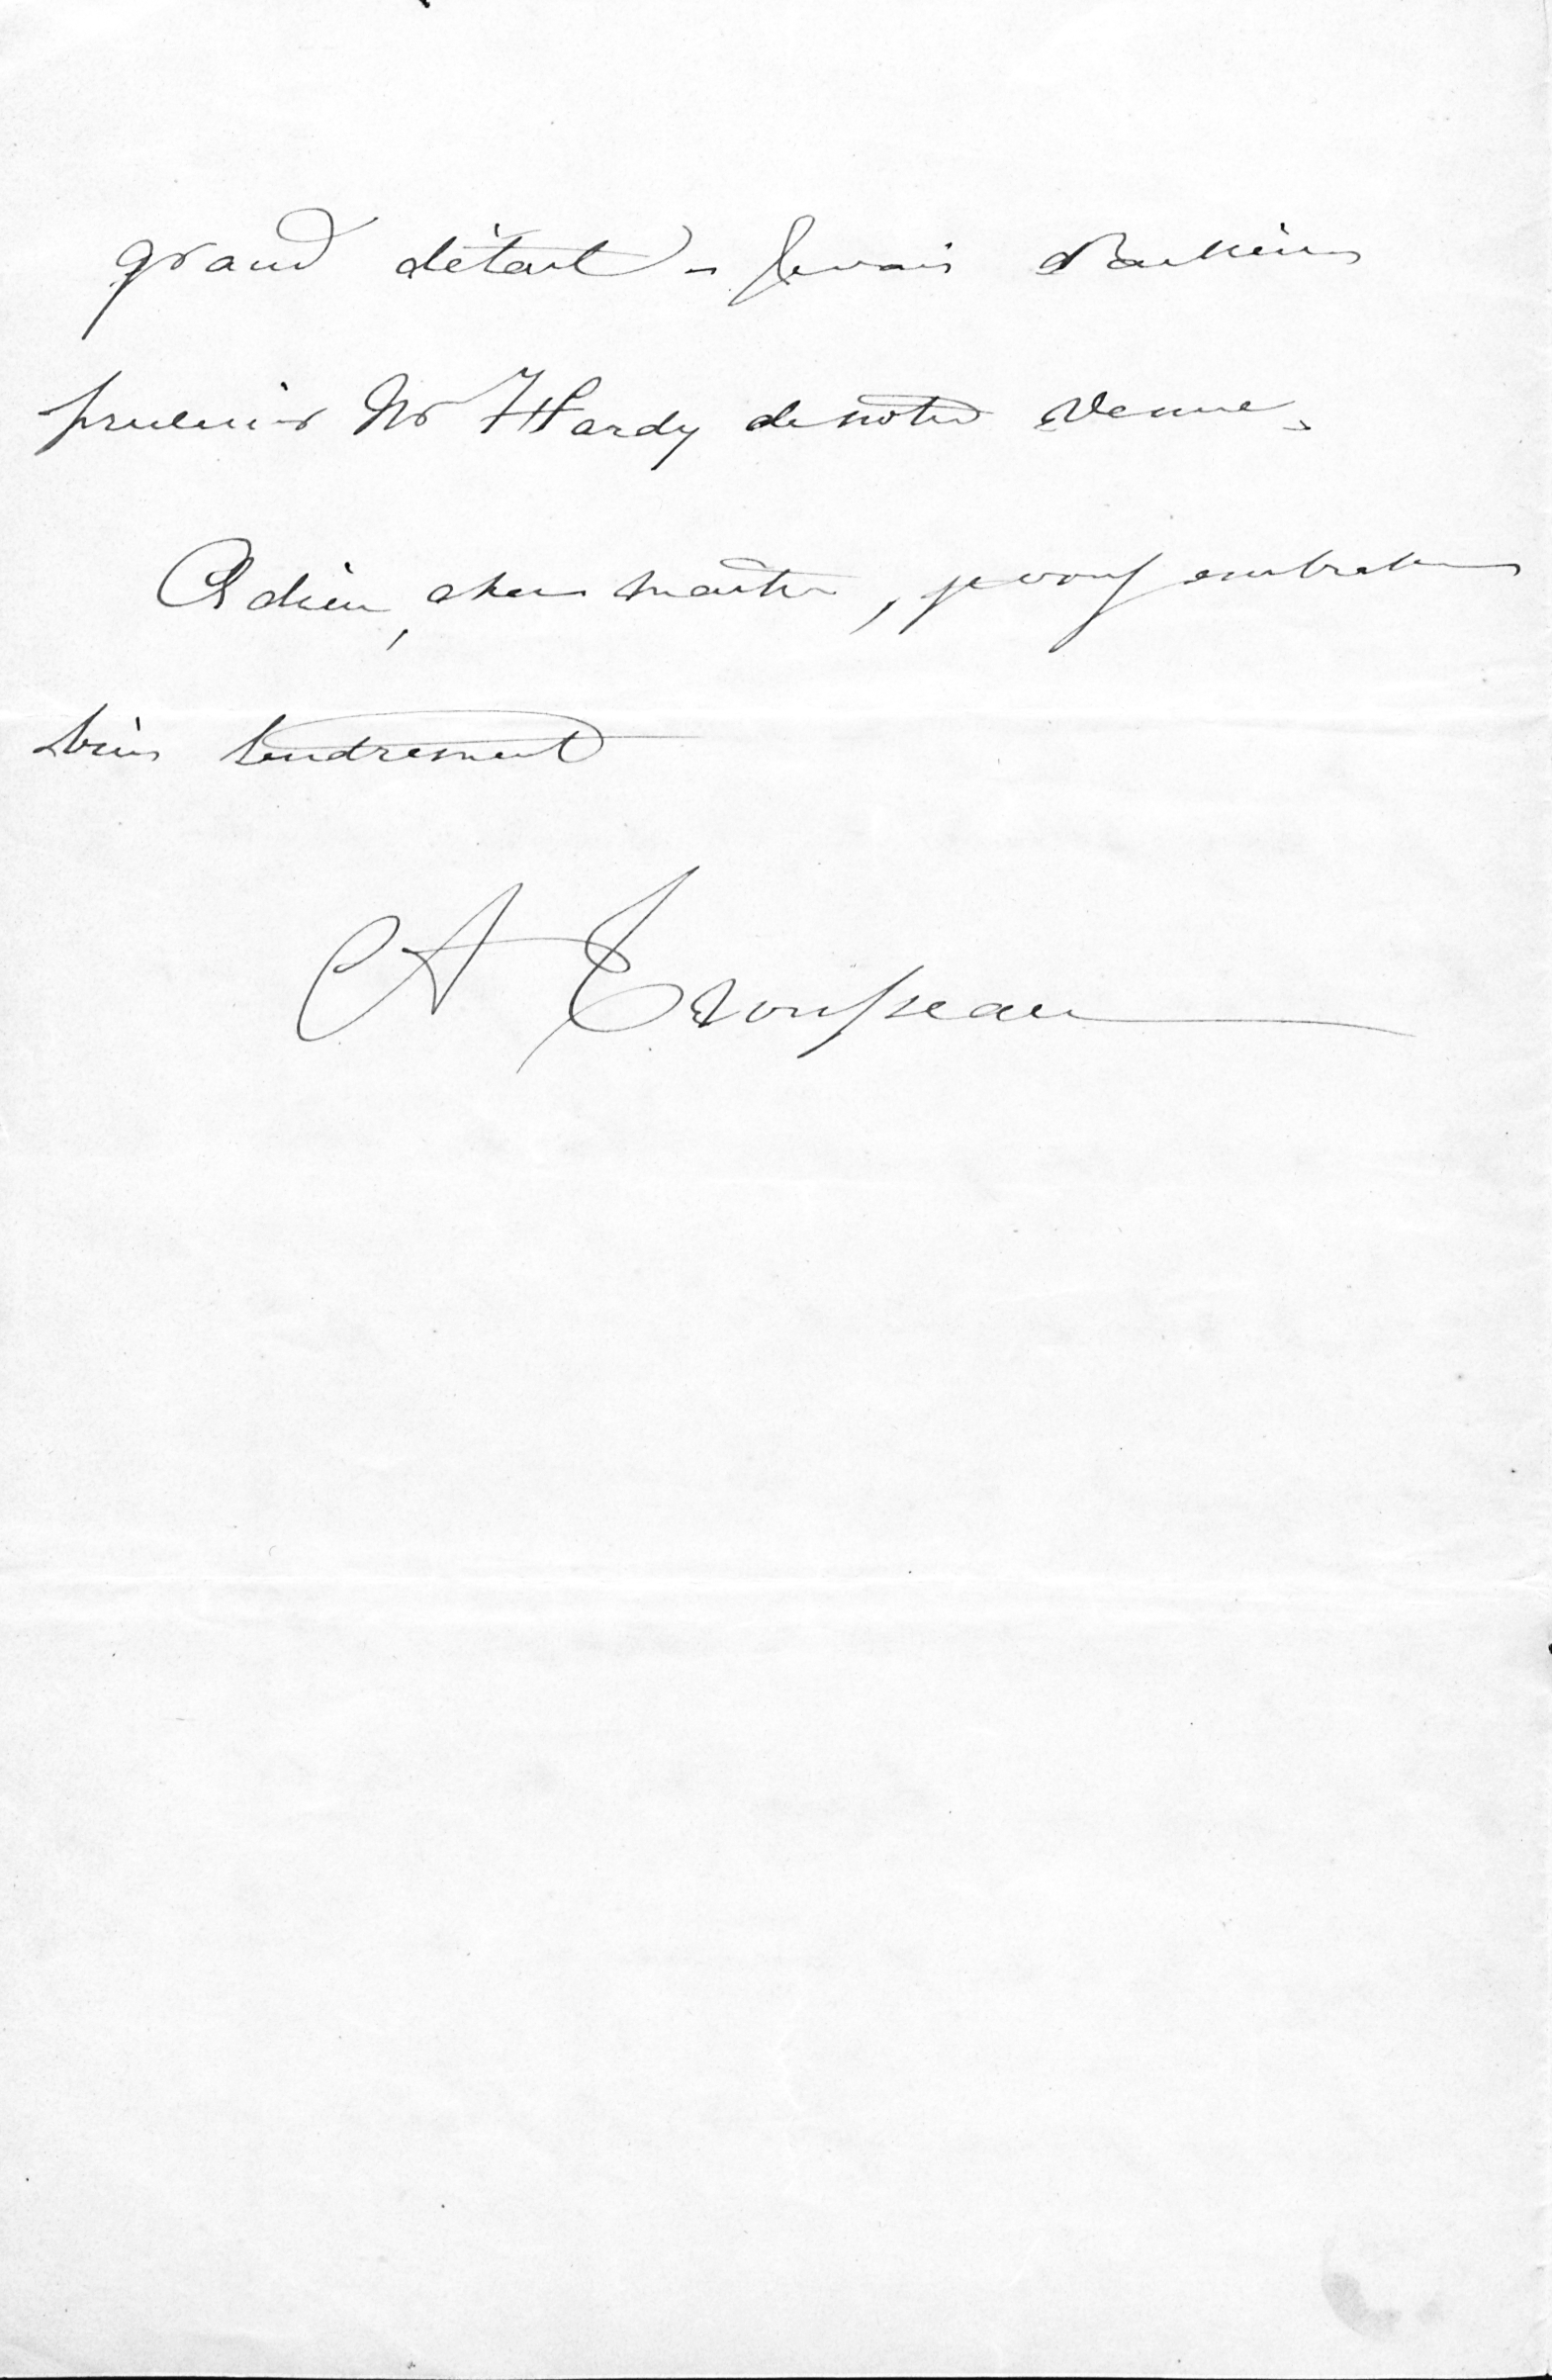 grand détail - Je vais
prévenir Mr Hardy de notre venue.
Adieu, cher maître, je vous embrasse
bien tendrement
A Trousseau